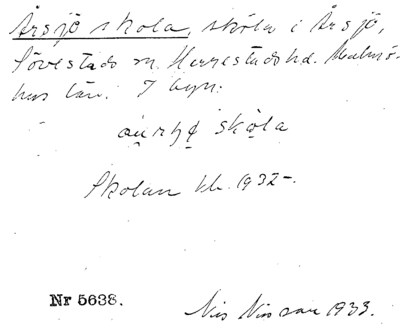 Årsjö skola, skola i Årsjö,
Sövestads sn. Herrestads hd. Malmö-
hus län. I byn:
skola
Skolan
1932-.
Nr 5638.
Nils Nilsson 1933.